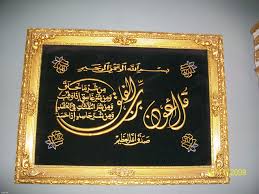 بسم الله الرحمن الرحيم
قل أعوذ برب الفلق
من شر ما خلق
ومن شر غاسق إذا وقب
ومن شر النفاثات في العقد
ومن شر حاسد إذا حسد
صدق الله العظيم
2008